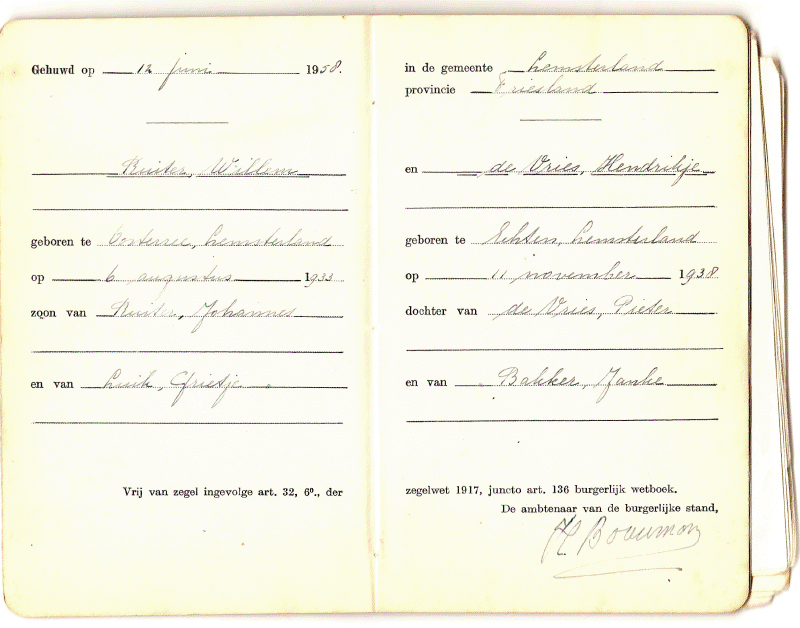 Gehuwd op 12 juni 1958.
Ruiter, Willem
geboren te Oosterzee, Lemsterland
op 6 augustus 1933
zoon van Ruiter, Johannes
en van Luik, Grietje
Vrij van zegel ingevolge art. 32, 6⁰., der
in de gemeente Lemsterland
provincie Friesland
en de Vries, Hendrikje
geboren te Echten, Lemsterland
op 11 november 1938
dochter van de Vries, Pieter
en van Bakker, Janke
zegelwet 1917, juncto art. 136 burgerlijk wetboek.
De ambtenaar van de burgerlijke stand,